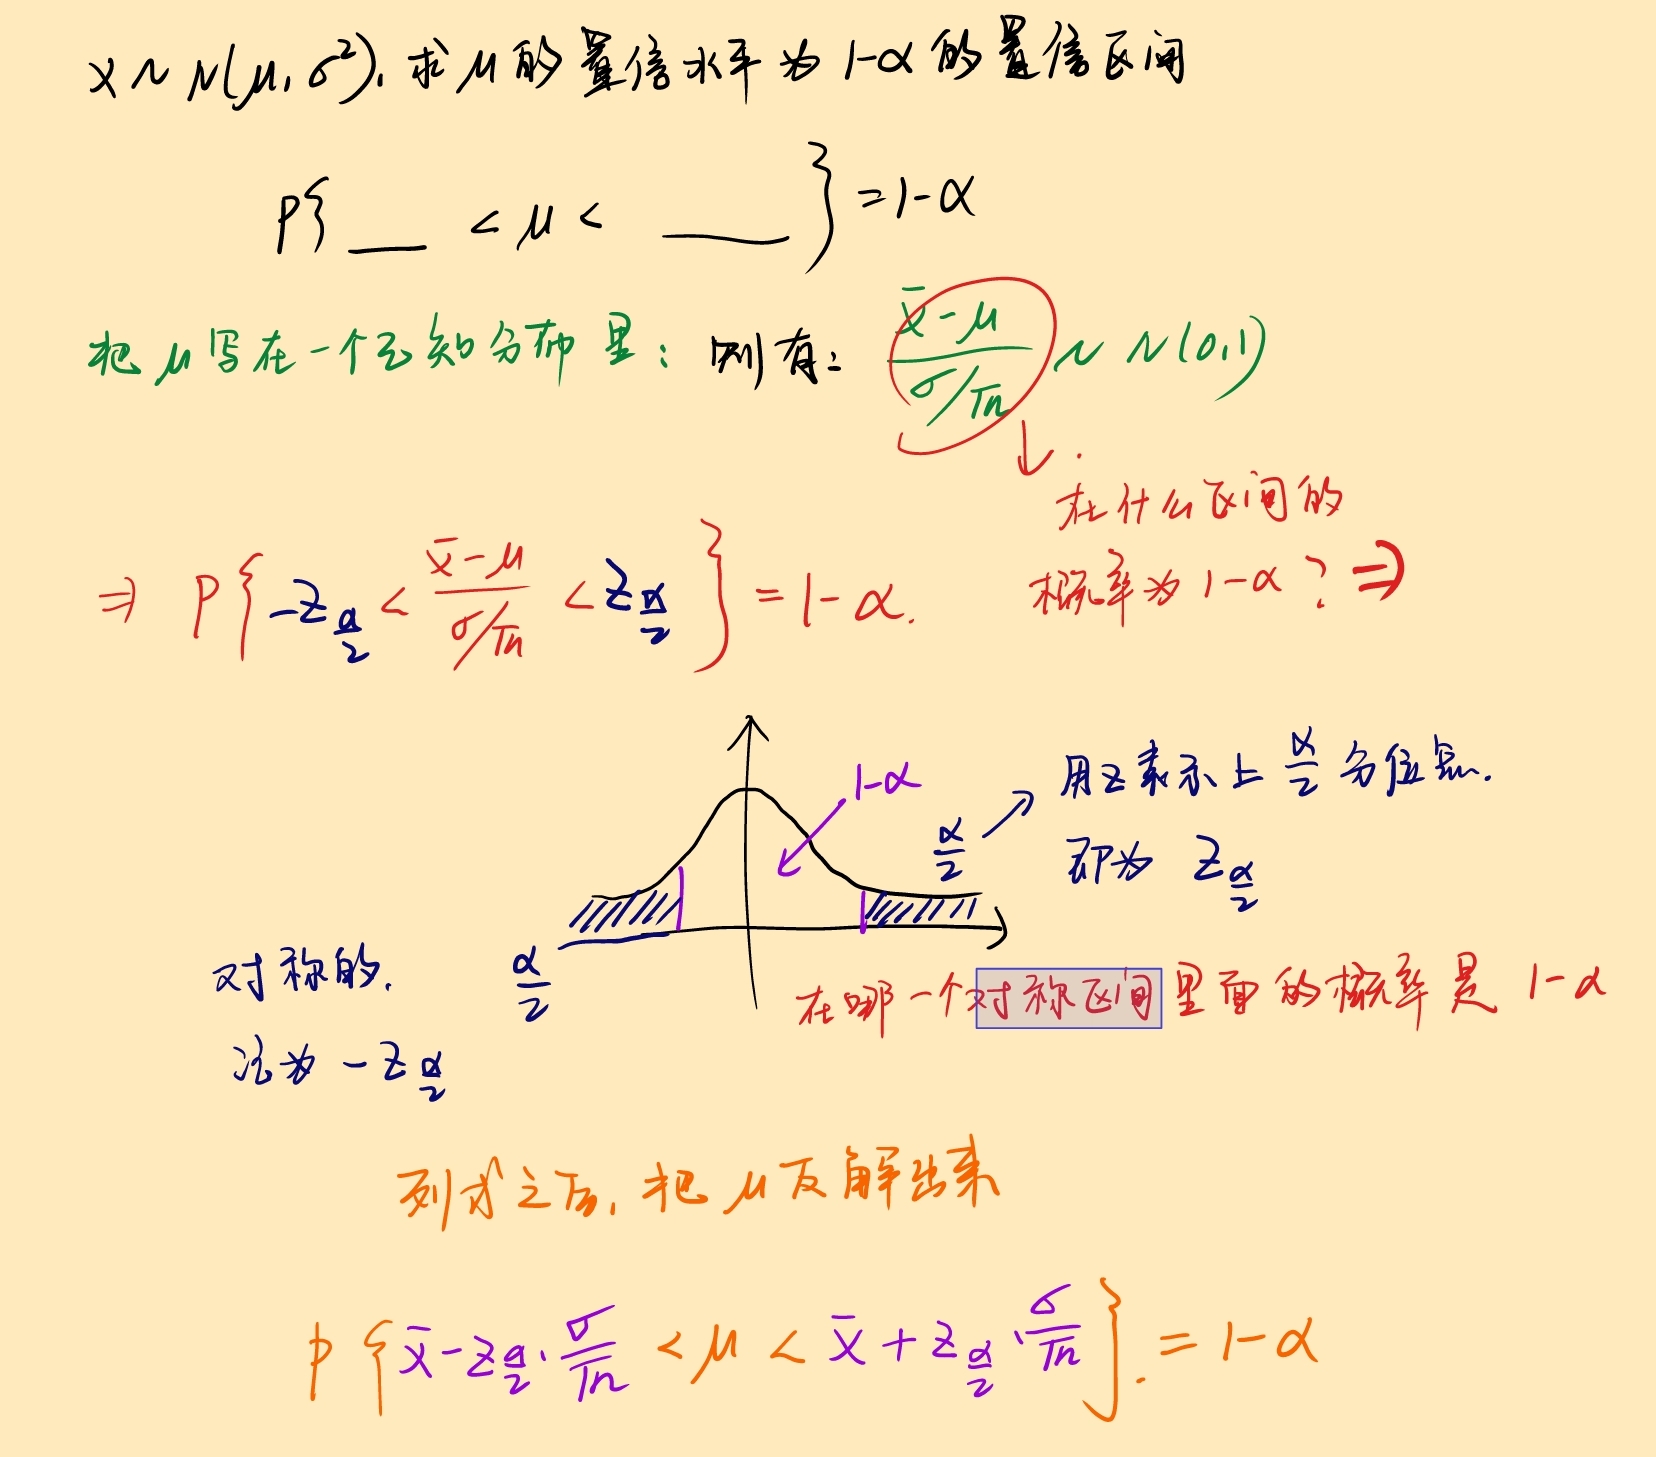 X ~ N(μ, σ²), 求 μ 的置信水平为 1-α 的置信区间
P{ ___ < μ < ____ } = 1-α
把 μ 写在一个已知分布里: 则有: (x̄-μ)/(σ/√n) ~ N(0,1)
↓
在什么区间的
概率为 1-α? ⇒
⇒ P{ -Z_{α/2} < (x̄-μ)/(σ/√n) < Z_{α/2} } = 1-α.
1-α
α/2 → 用Z表示上 α/2 分位点.
即为 Z_{α/2}
α/2
对称的.
记为 -Z_{α/2}
在哪一个对称区间里面的概率是 1-α
列式之后, 把 μ 反解出来
P{ x̄ - Z_{α/2}·σ/√n < μ < x̄ + Z_{α/2}·σ/√n }. = 1-α